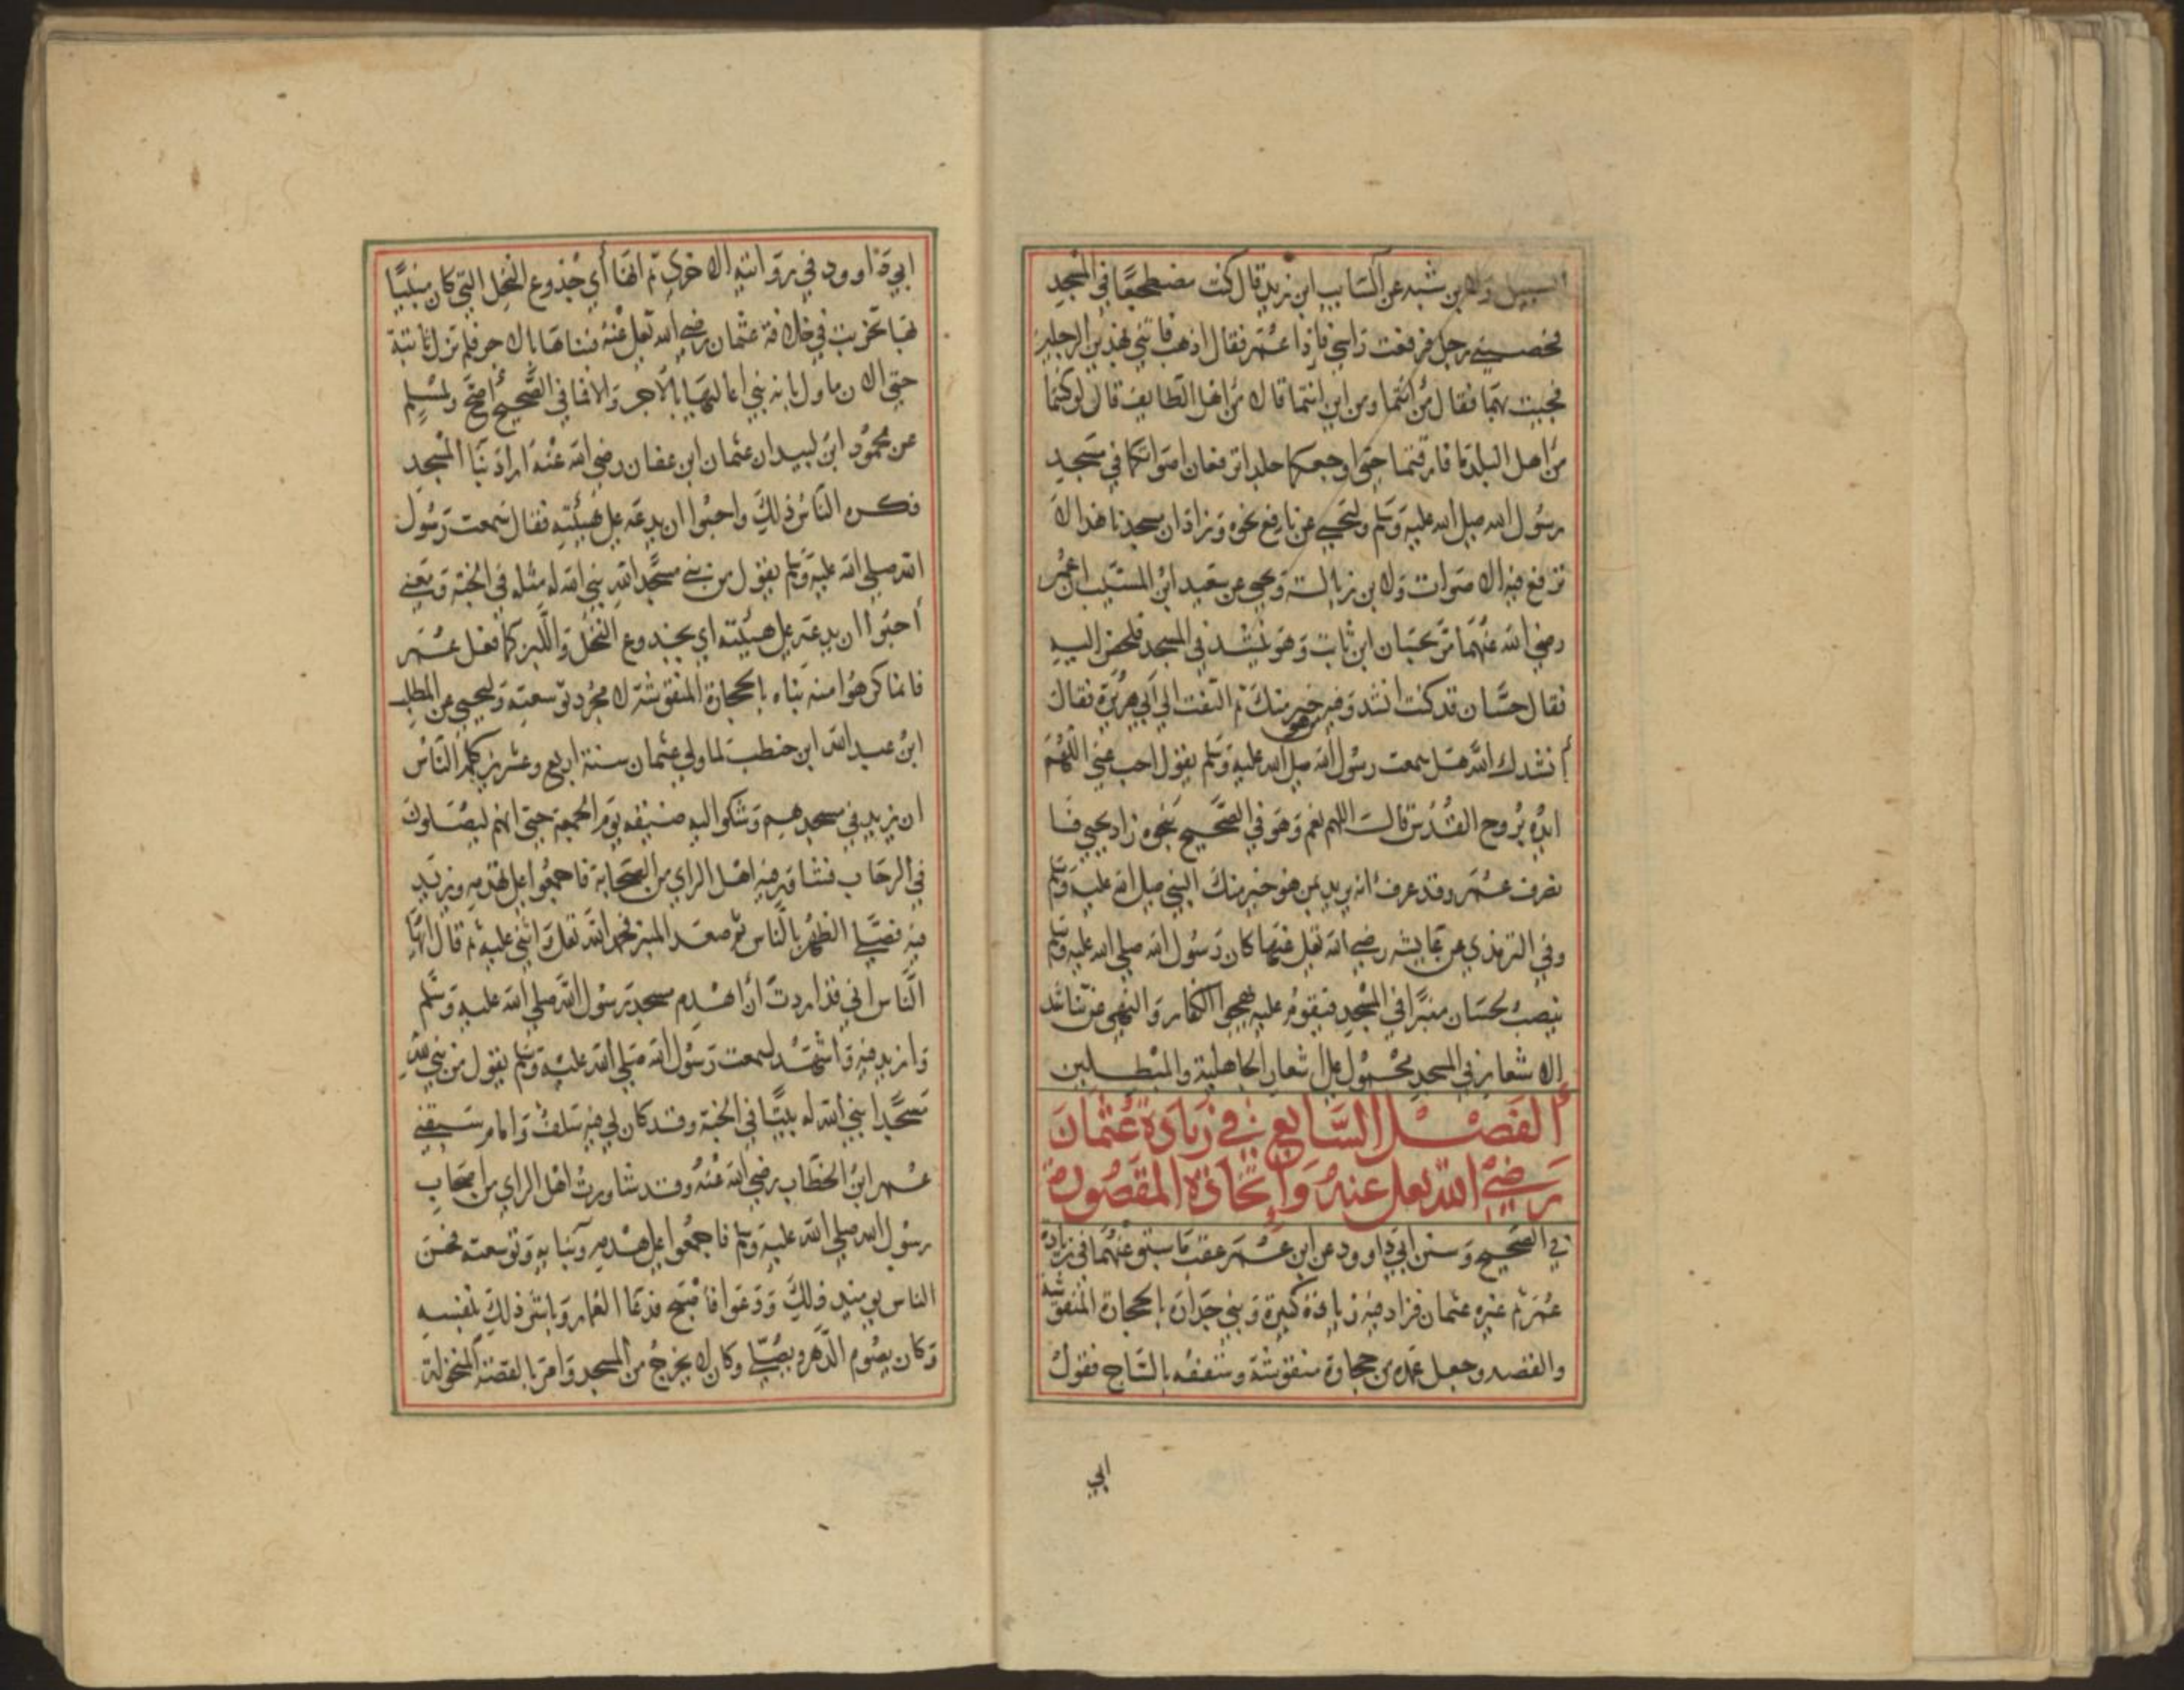 السبيل ولابن شبه عن السايب ابن زيد قال كنت مضطجعا في المسجد
فحصبني رجل فرفعت راسي فاذا عمر فقال اذهب فاتني بهذين الرجلين
فجيت بهما فقال من انتما ومن اين انتما قالا من اهل الطايف قال لو كنتما
من اهل البلد ما فارقتما حتى اوجعكما جلدا ترفعان اصواتكما في مسجد
رسول الله صلى الله عليه وسلم وليحيى عن نافع نحوه وزاد ان مسجدنا هذا لا
ترفع فيه الاصوات ولابن زبالة ويحيى عن سعيد ابن المسيب ان عمر
رضي الله عنهما مر بحسان ابن ثابت وهو ينشد في المسجد فلحظ اليه
فقال حسان قد كنت انشد وفيه من هو خير منك ثم التفت الى ابي هريرة فقال
أنشدك الله هل سمعت رسول الله صلى الله عليه وسلم يقول اجب عني اللهم
ايده بروح القدس قال اللهم نعم وهو في الصحيح بنحوه زاد يحيى فا
نصرف عمر وقد عرف انه يريد بمن هو خير منك النبي صلى الله عليه وسلم
وفي الترمذي عن عايشه رضي الله تعلى عنها كان رسول الله صلى الله عليه وسلم
ينصب لحسان منبرا في المسجد فيقوم عليه يهجوا الكفار والنهي عن تناشد
الاشعار في المسجد محمول على اشعار الجاهلية والمبطلين
الفصل السابع في زيادة عثمان
رضي الله تعلى عنه واتخاذه المقصورة
في الصحيح وسنن ابي داوود عن ابن عمر عقب ما سبق عنهما في زيادة
عمر ثم غيره عثمان فزاد فيه زيادة كبيرة وبنى جداره بالحجارة المنقوشة
والقصه وجعل عمده من حجارة منقوشة وسقفه بالساج فقول
ابي
ابي داوود في روايته الاخرى ثم انها أي جذوع النخل التي كان مبنيا
بها تخربت في خلافة عثمان رضي الله تعلى عنه فبناها بالاجر فلم تزل ثابتة
حتى الان ماول بانه بنى اعاليها بالآجر والا فما في الصحيح أصح ولمسلم
عن محمود ابن لبيد ان عثمان ابن عفان رضي الله عنه اراد بنا المسجد
فكره الناس ذلك واحبوا ان يدعه على هيئته فقال سمعت رسول
الله صلى الله عليه وسلم يقول من بنى مسجدا لله بنى الله له مثله في الجنة ومعنى
أحبوا ان يدعه على هيئته اي بجذوع النخل واللبن كما فعل عمر
فانما كرهوا منه بناه بالحجارة المنقوشة لا مجرد توسعته وليحيى عن المطلب
ابن عبد الله ابن حنطب لما ولي عثمان سنة اربع وعشرين كلمه الناس
ان يزيد في مسجدهم وشكوا اليه ضيقه يوم الجمعة حتى انهم ليصلون
في الرحاب فشاور فيه اهل الراي من الصحابة فاجمعوا على هدمه ويزيد
فيه فصلى الظهر بالناس ثم صعد المنبر فحمد الله تعلى واثنى عليه ثم قال ايها
الناس اني قد اردت أن اهدم مسجد رسول الله صلى الله عليه وسلم
وازيد فيه واشهد لسمعت رسول الله صلى الله عليه وسلم يقول من بنى لله
مسجدا بنى الله له بيتا في الجنة وقد كان لي فيه سلف وامام سبقني
عمر ابن الخطاب رضي الله عنه وقد شاورت اهل الراي من اصحاب
رسول الله صلى الله عليه وسلم فاجمعوا على هدمه وبنايه وتوسعته فحسن
الناس يوميذ ذلك ودعوا فاصبح فدعا العمار وباشر ذلك بنفسه
وكان يصوم الدهر ويصلي وكان لا يخرج من المسجد وامر بالقصة المنخولة